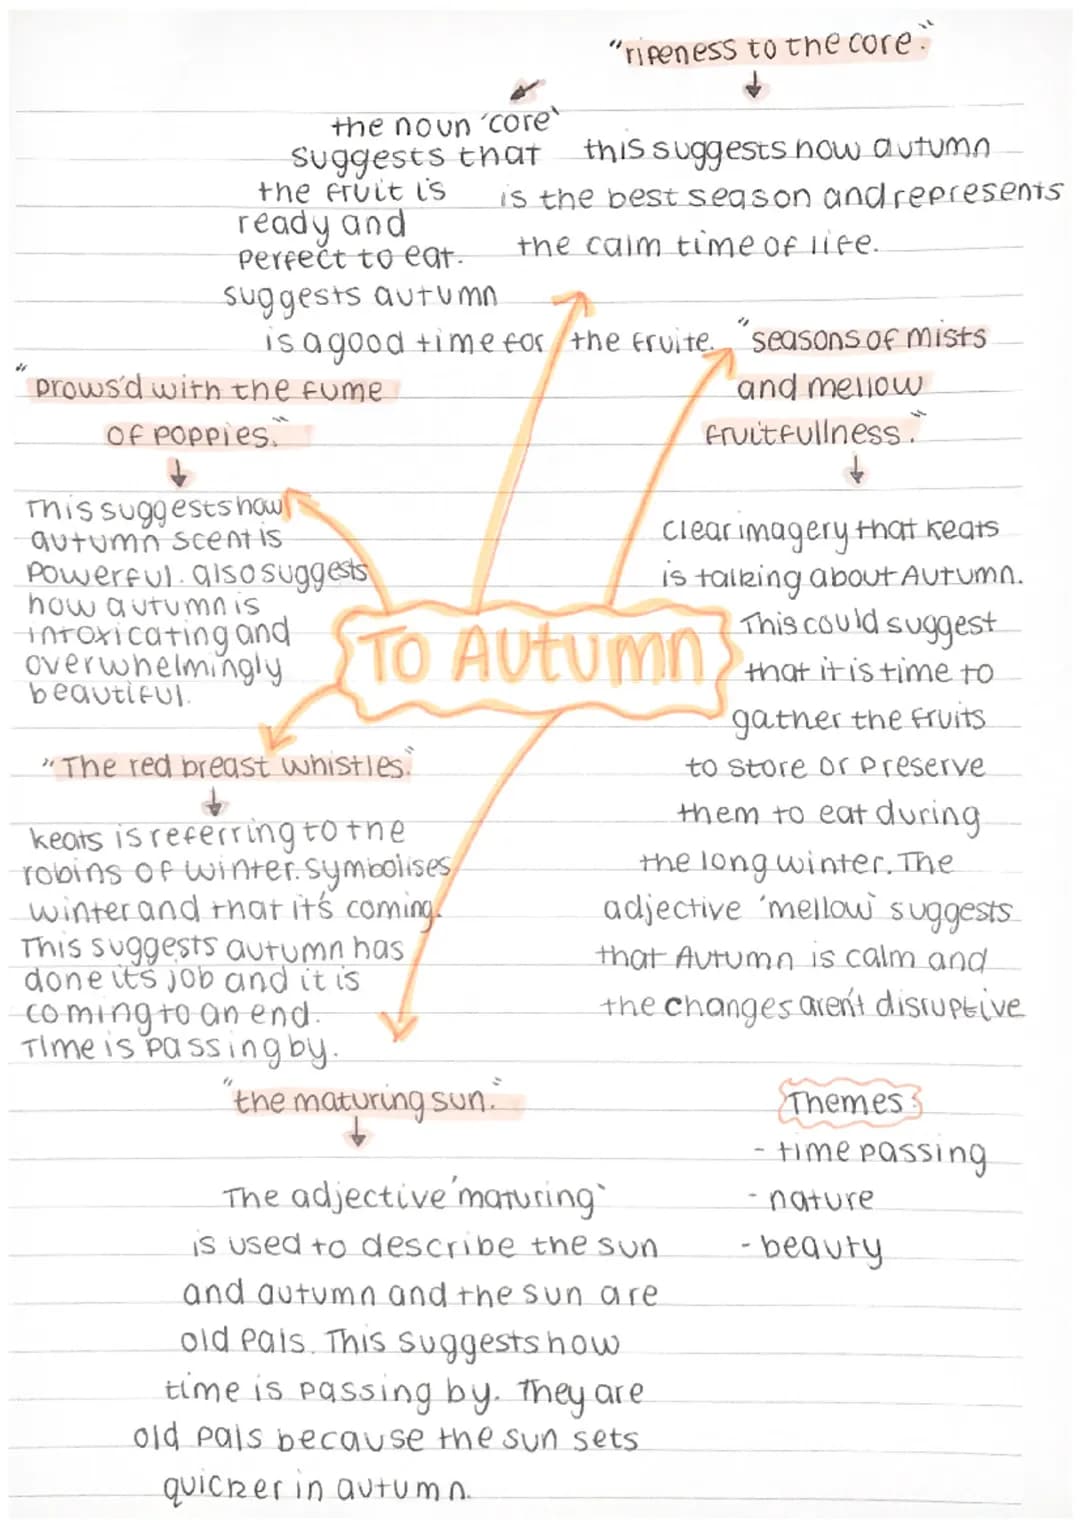 "ripeness to the core."
the noun 'core'
suggests that
the fruit is
ready and
perfect to eat.
suggests autumn
is a good time for the fruite.
this suggests how autumn
is the best season and represents
the calm time of life.
"seasons of mists
and mellow
fruitfullness."
clear imagery that keats
is talking about Autumn.
This could suggest
that it is time to
gather the fruits
to store or preserve
them to eat during
the long winter. The
adjective 'mellow' suggests
that Autumn is calm and
the changes aren't disruptive
"Drows'd with the fume
of poppies."
This suggests how
autumn scent is
powerful. also suggests
how autumn is
intoxicating and
overwhelmingly
beautiful.
TO AUtumn
"The red breast whistles."
keats is referring to the
robins of winter. symbolises
winter and that it's coming.
This suggests autumn has
done its job and it is
coming to an end.
Time is passing by.
"the maturing sun."
The adjective 'maturing'
is used to describe the sun
and autumn and the sun are
old pals. This suggests how
time is passing by. They are
old pals because the sun sets
quicker in autumn.
Themes:
- time passing
- nature
- beauty